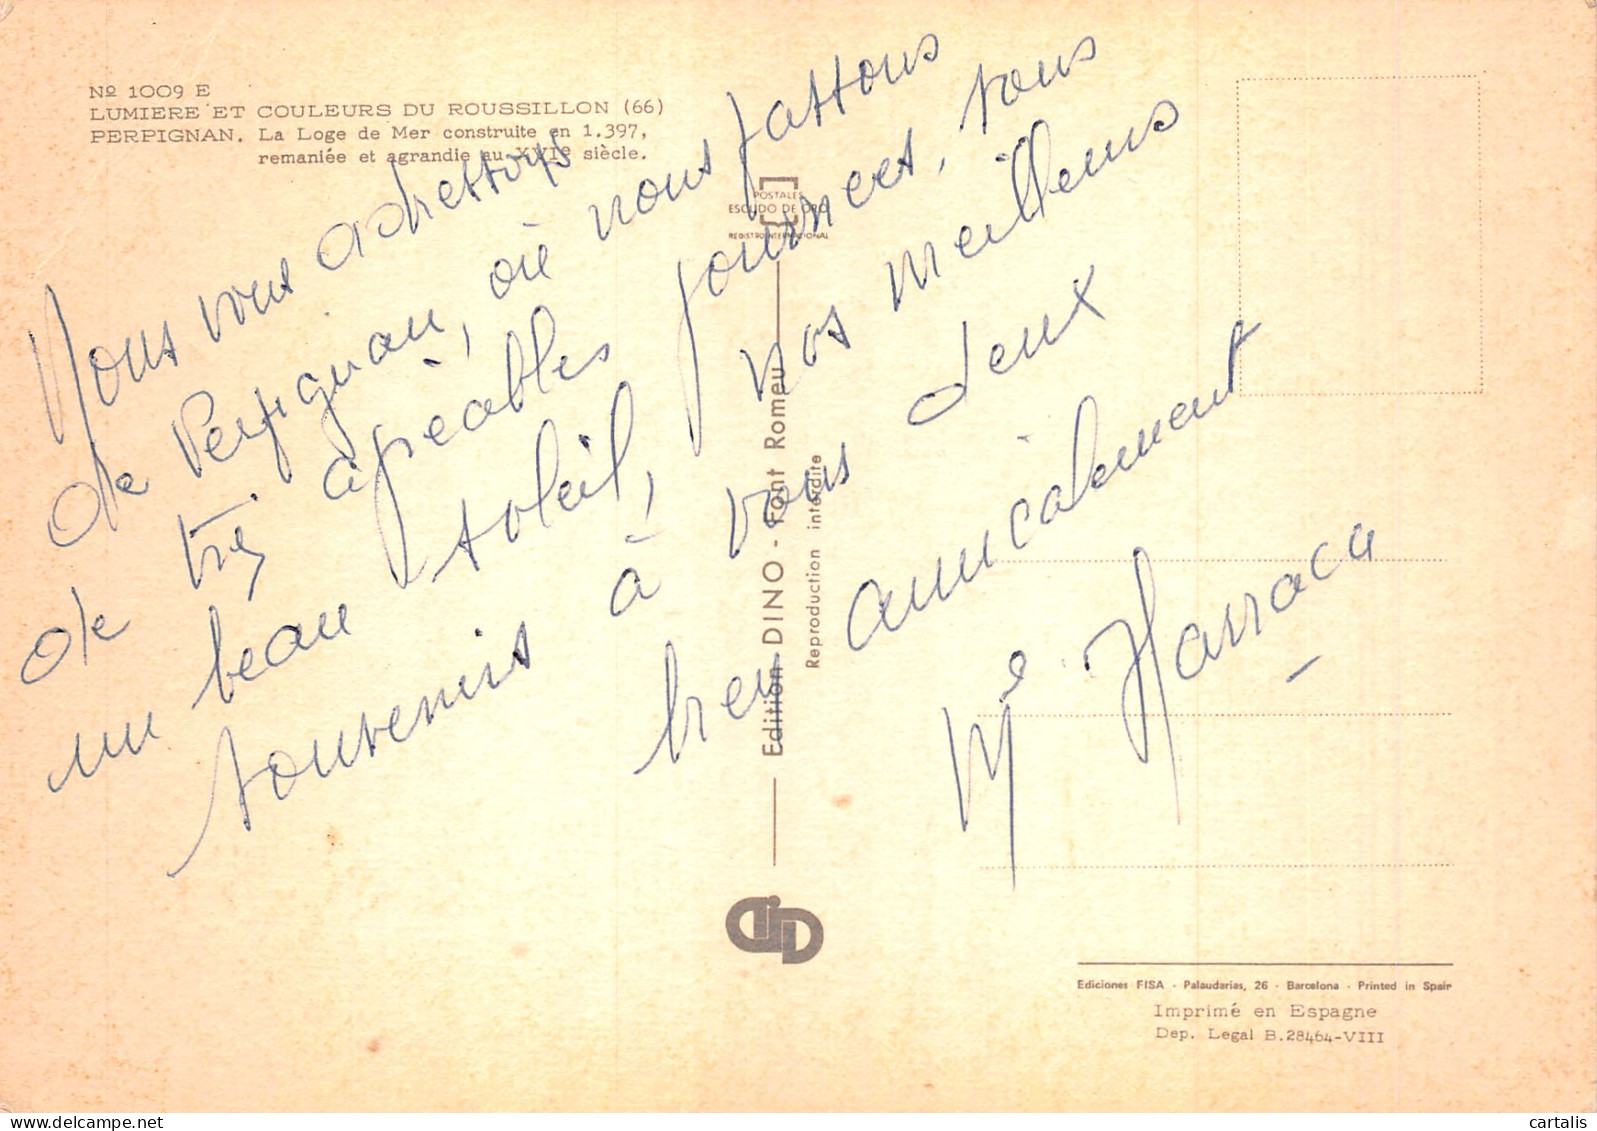 Nº 1009 E
LUMIERE ET COULEURS DU ROUSSILLON (66)
PERPIGNAN. La Loge de Mer construite en 1.397,
remaniée et agrandie au XVIe siècle.
Nous vous adressons
de Perpignan, où nous passons
de très agréables journées, sous
un beau soleil, nos meilleurs
souvenirs à vous deux
bien amicalement
POSTALES
ESCUDO DE ORO
REGISTRO INTERNACIONAL
Edition DINO - Font Romeu
Reproduction interdite
Ediciones FISA - Palaudarias, 26 - Barcelona - Printed in Spain
Imprimé en Espagne
Dep. Legal B.28464-VIII
cartalis
delcampe.net